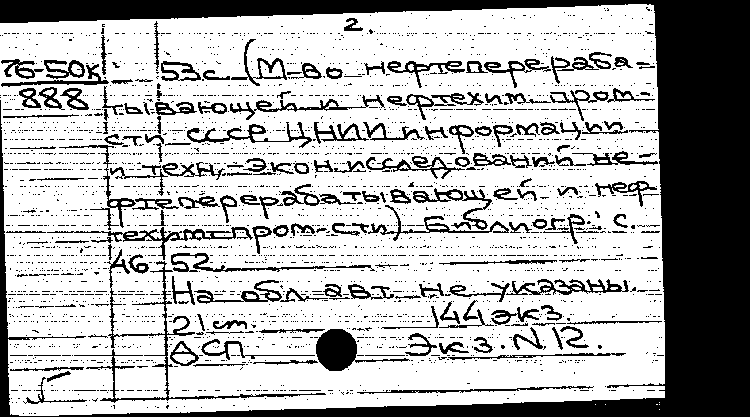 2.
76-50к 53с. (М-во нефтеперераба-
888 тывающей и нефтехим. пром-
сти СССР. ЦНИИ информации
и техн.-экон. исследований не-
фтеперерабатывающей и неф
техим. пром-сти). Библиогр.: с.
46-52.
На обл. авт. не указаны.
21 cm. 144 экз.
ДСП. Экз. N 12.